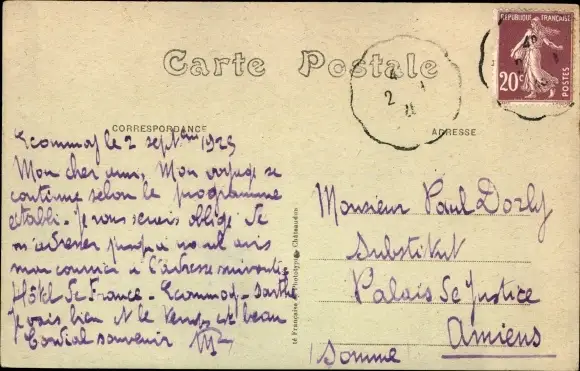 Carte Postale
CORRESPONDANCE
ADRESSE
REPUBLIQUE FRANÇAISE
20c
POSTES
Ecommoy le 2 septem 1925
Mon cher ami, Mon voyage se
continue selon le programme
établi. Je vous serais obligé de
m'adresser jusqu'à nouvel avis
mon courrier à l'adresse suivante
Hôtel de France - Ecommoy - Sarthe
Je vais bien et le temps est beau
Cordial souvenir
Monsieur Paul Dorly
Substitut
Palais de Justice
Amiens
(Somme)
té Française de Phototypie, Châteaudun